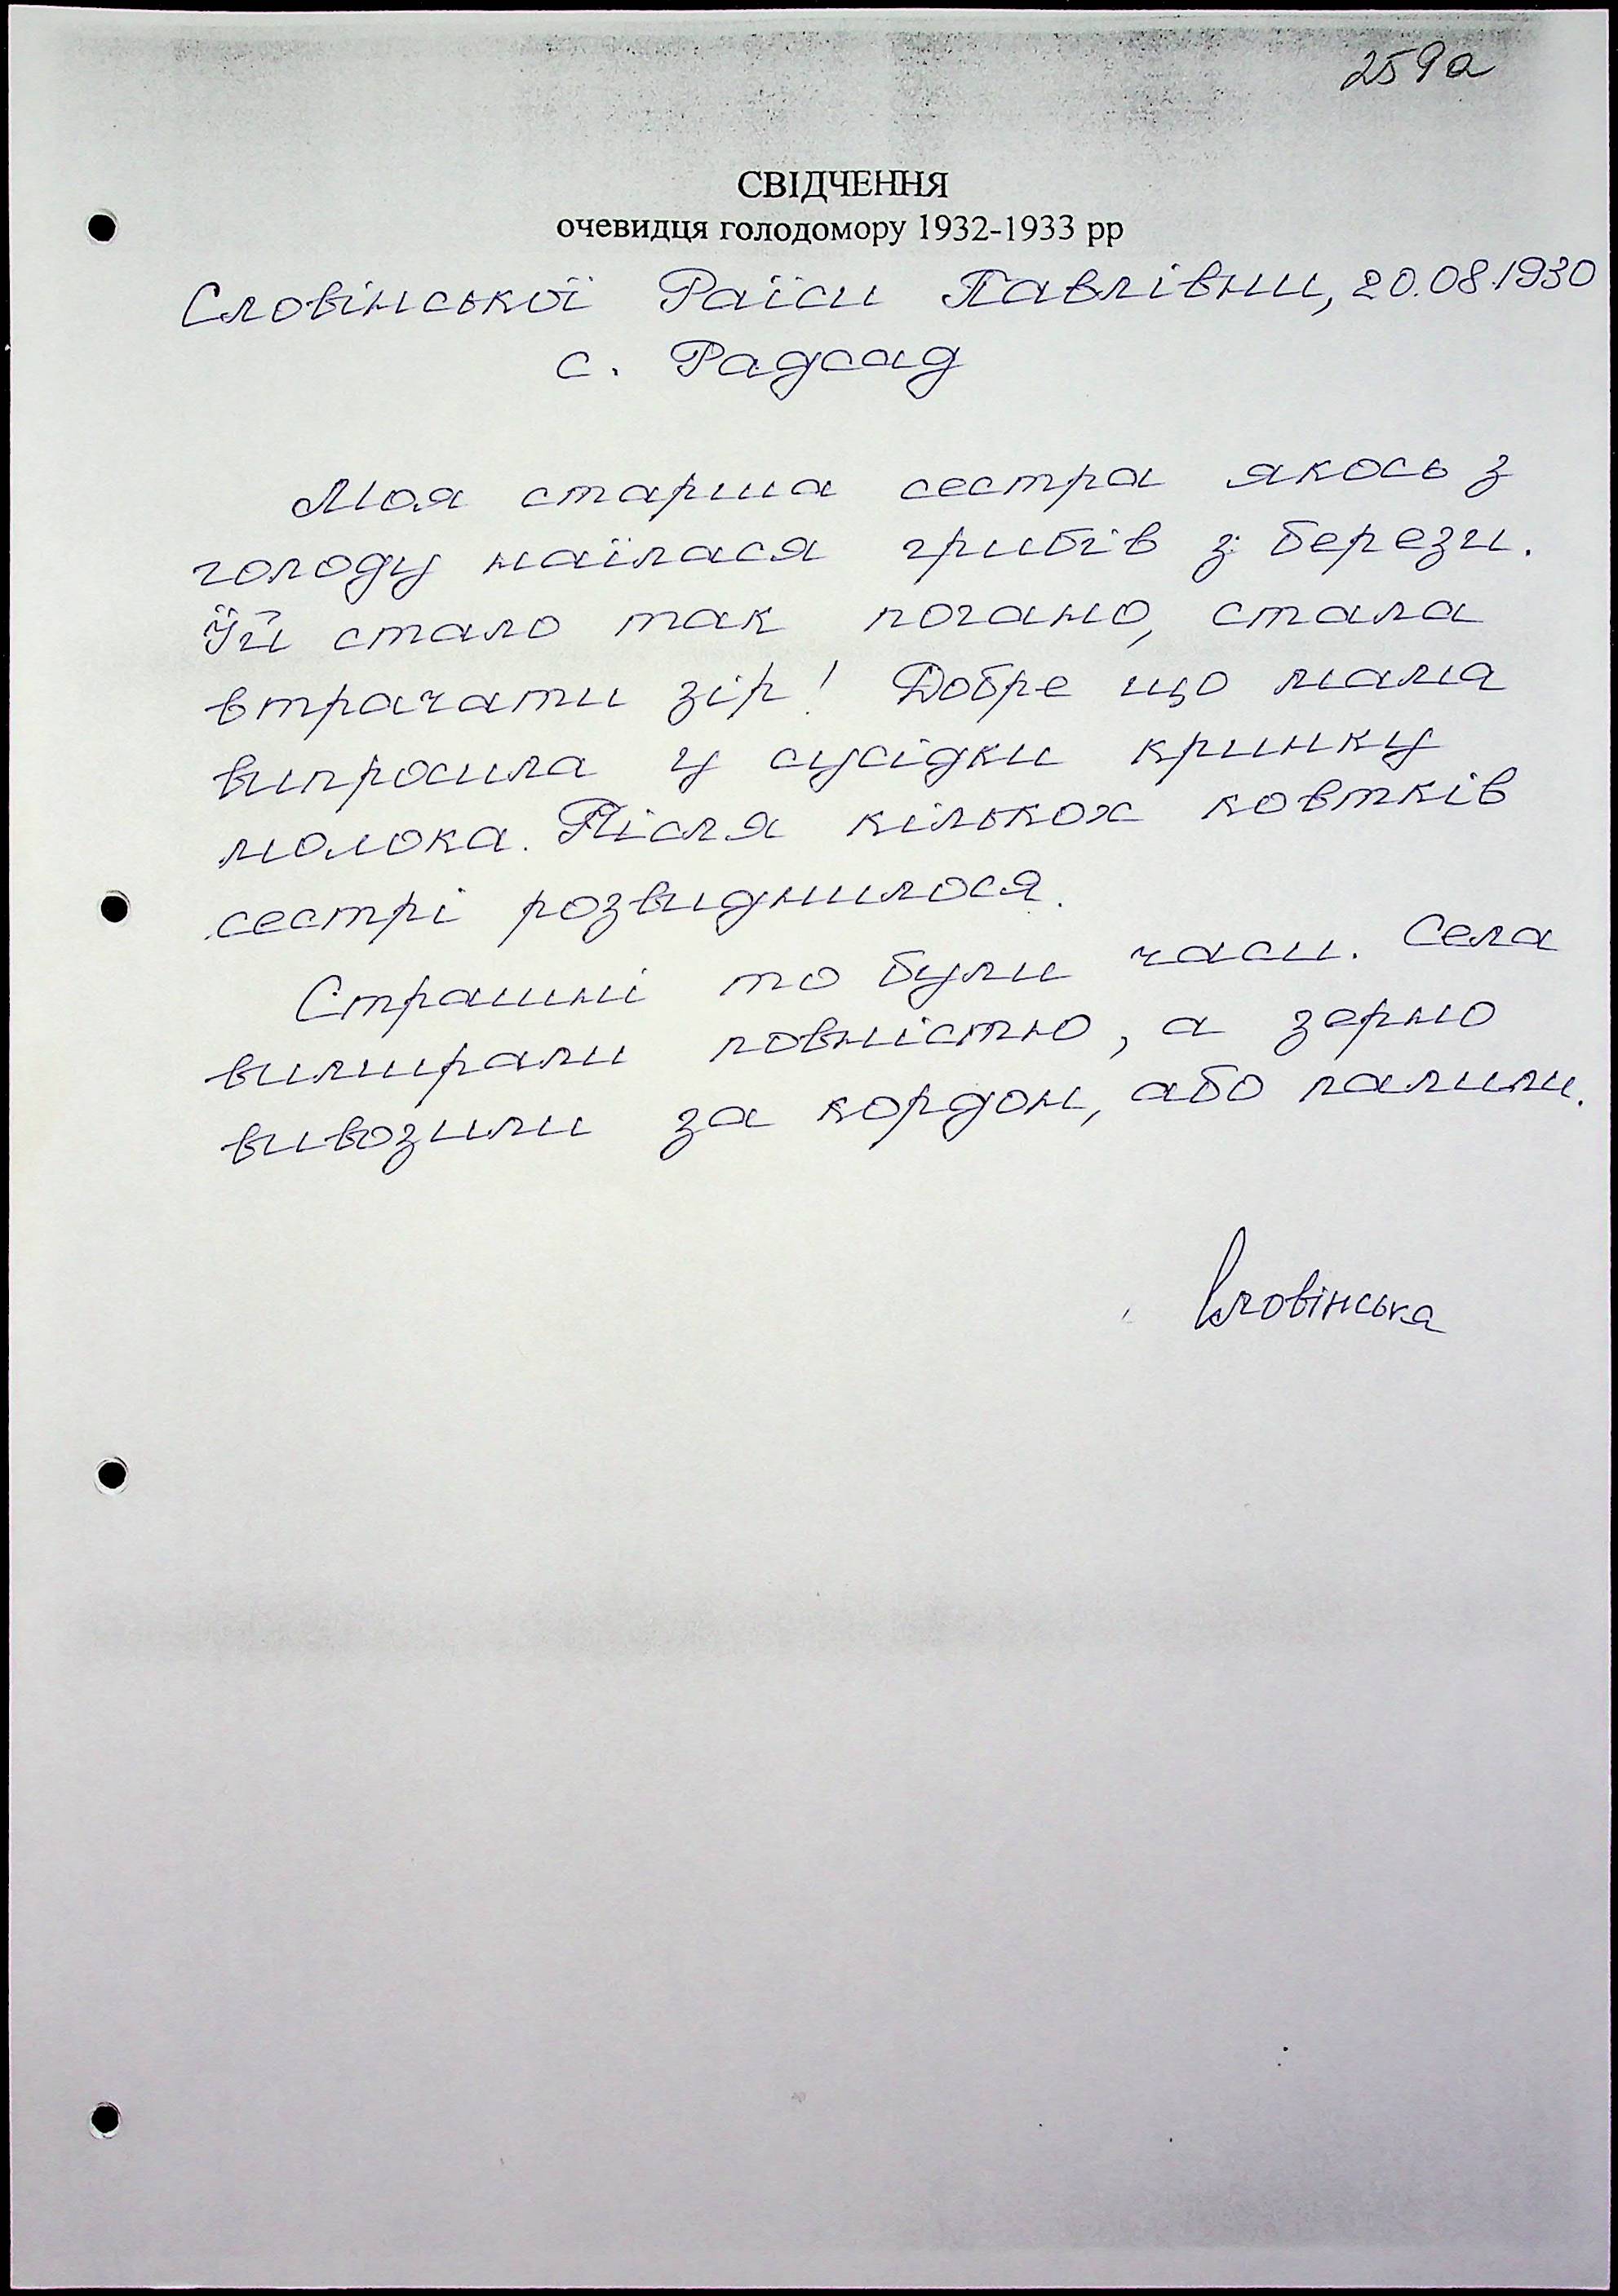 259а
СВІДЧЕННЯ
очевидця голодомору 1932-1933 рр
Словінської Раїси Павлівни, 20.08.1930
с. Радсад
Моя старша сестра якось з
голоду наїлася грибів з берези.
Їй стало так погано, стала
втрачати зір! Добре що мама
випросила у сусідки кринку
молока. Після кількох ковтків
сестрі розвиднилося.
Страшні то були часи. Села
вимирали повністю, а зерно
вивозили за кордон, або палили.
Словінська